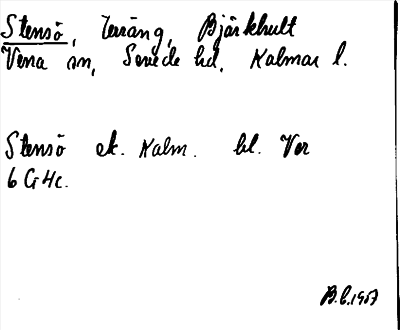 Stensö, terräng, Björkhult
Vena sn, Sevede hd, Kalmar l.
Stensö ek. Kalm. bl. Ver
6 G 4c.
B.L. 1957